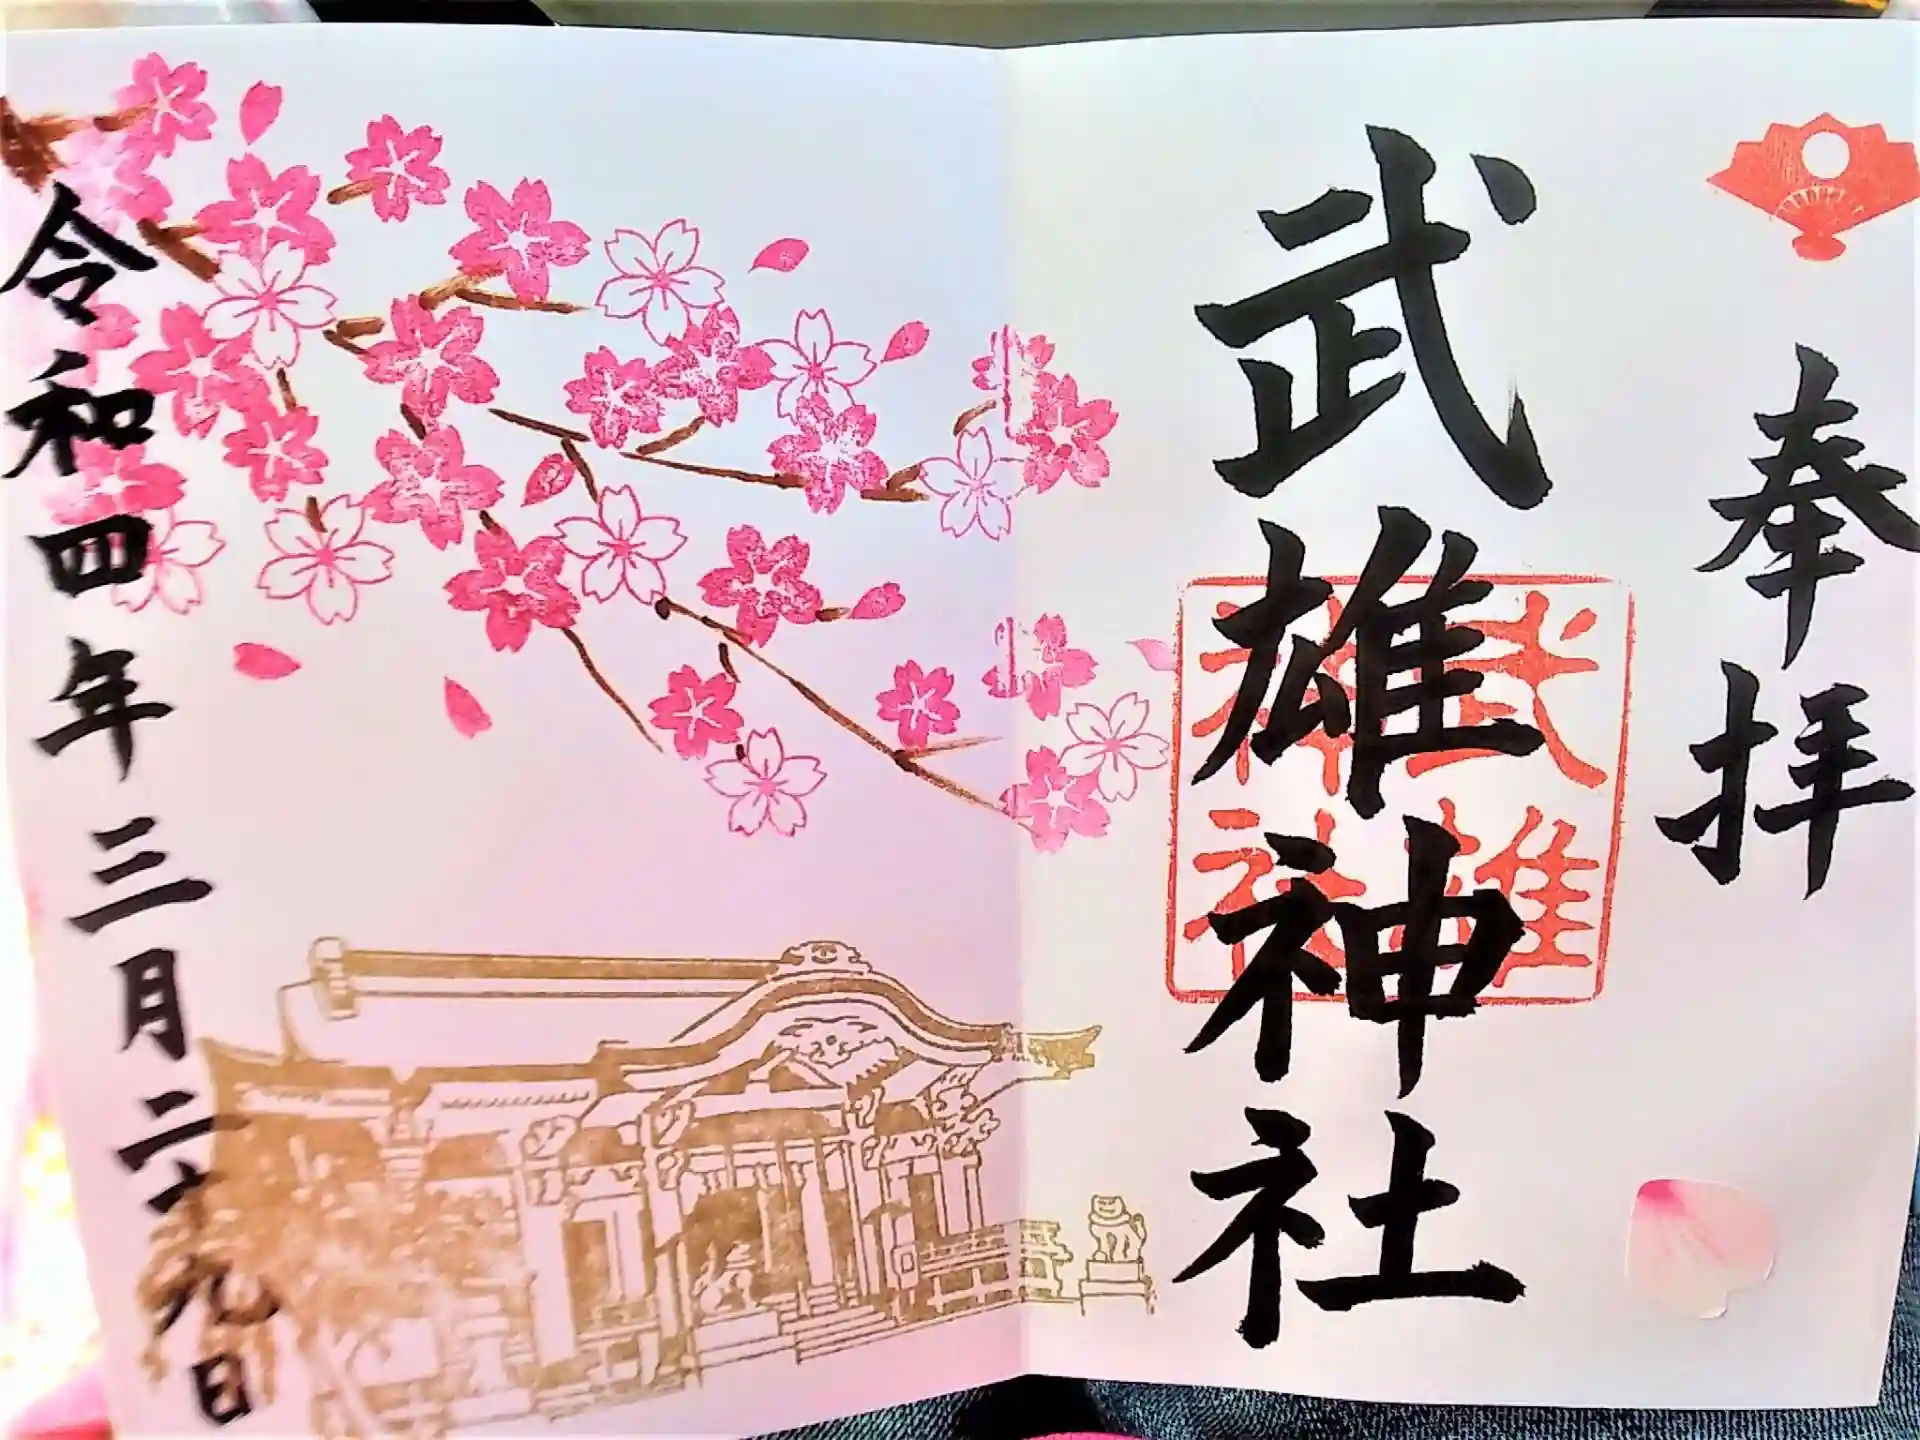 奉拝
武雄神社
武雄
神社
令和四年三月二十九日